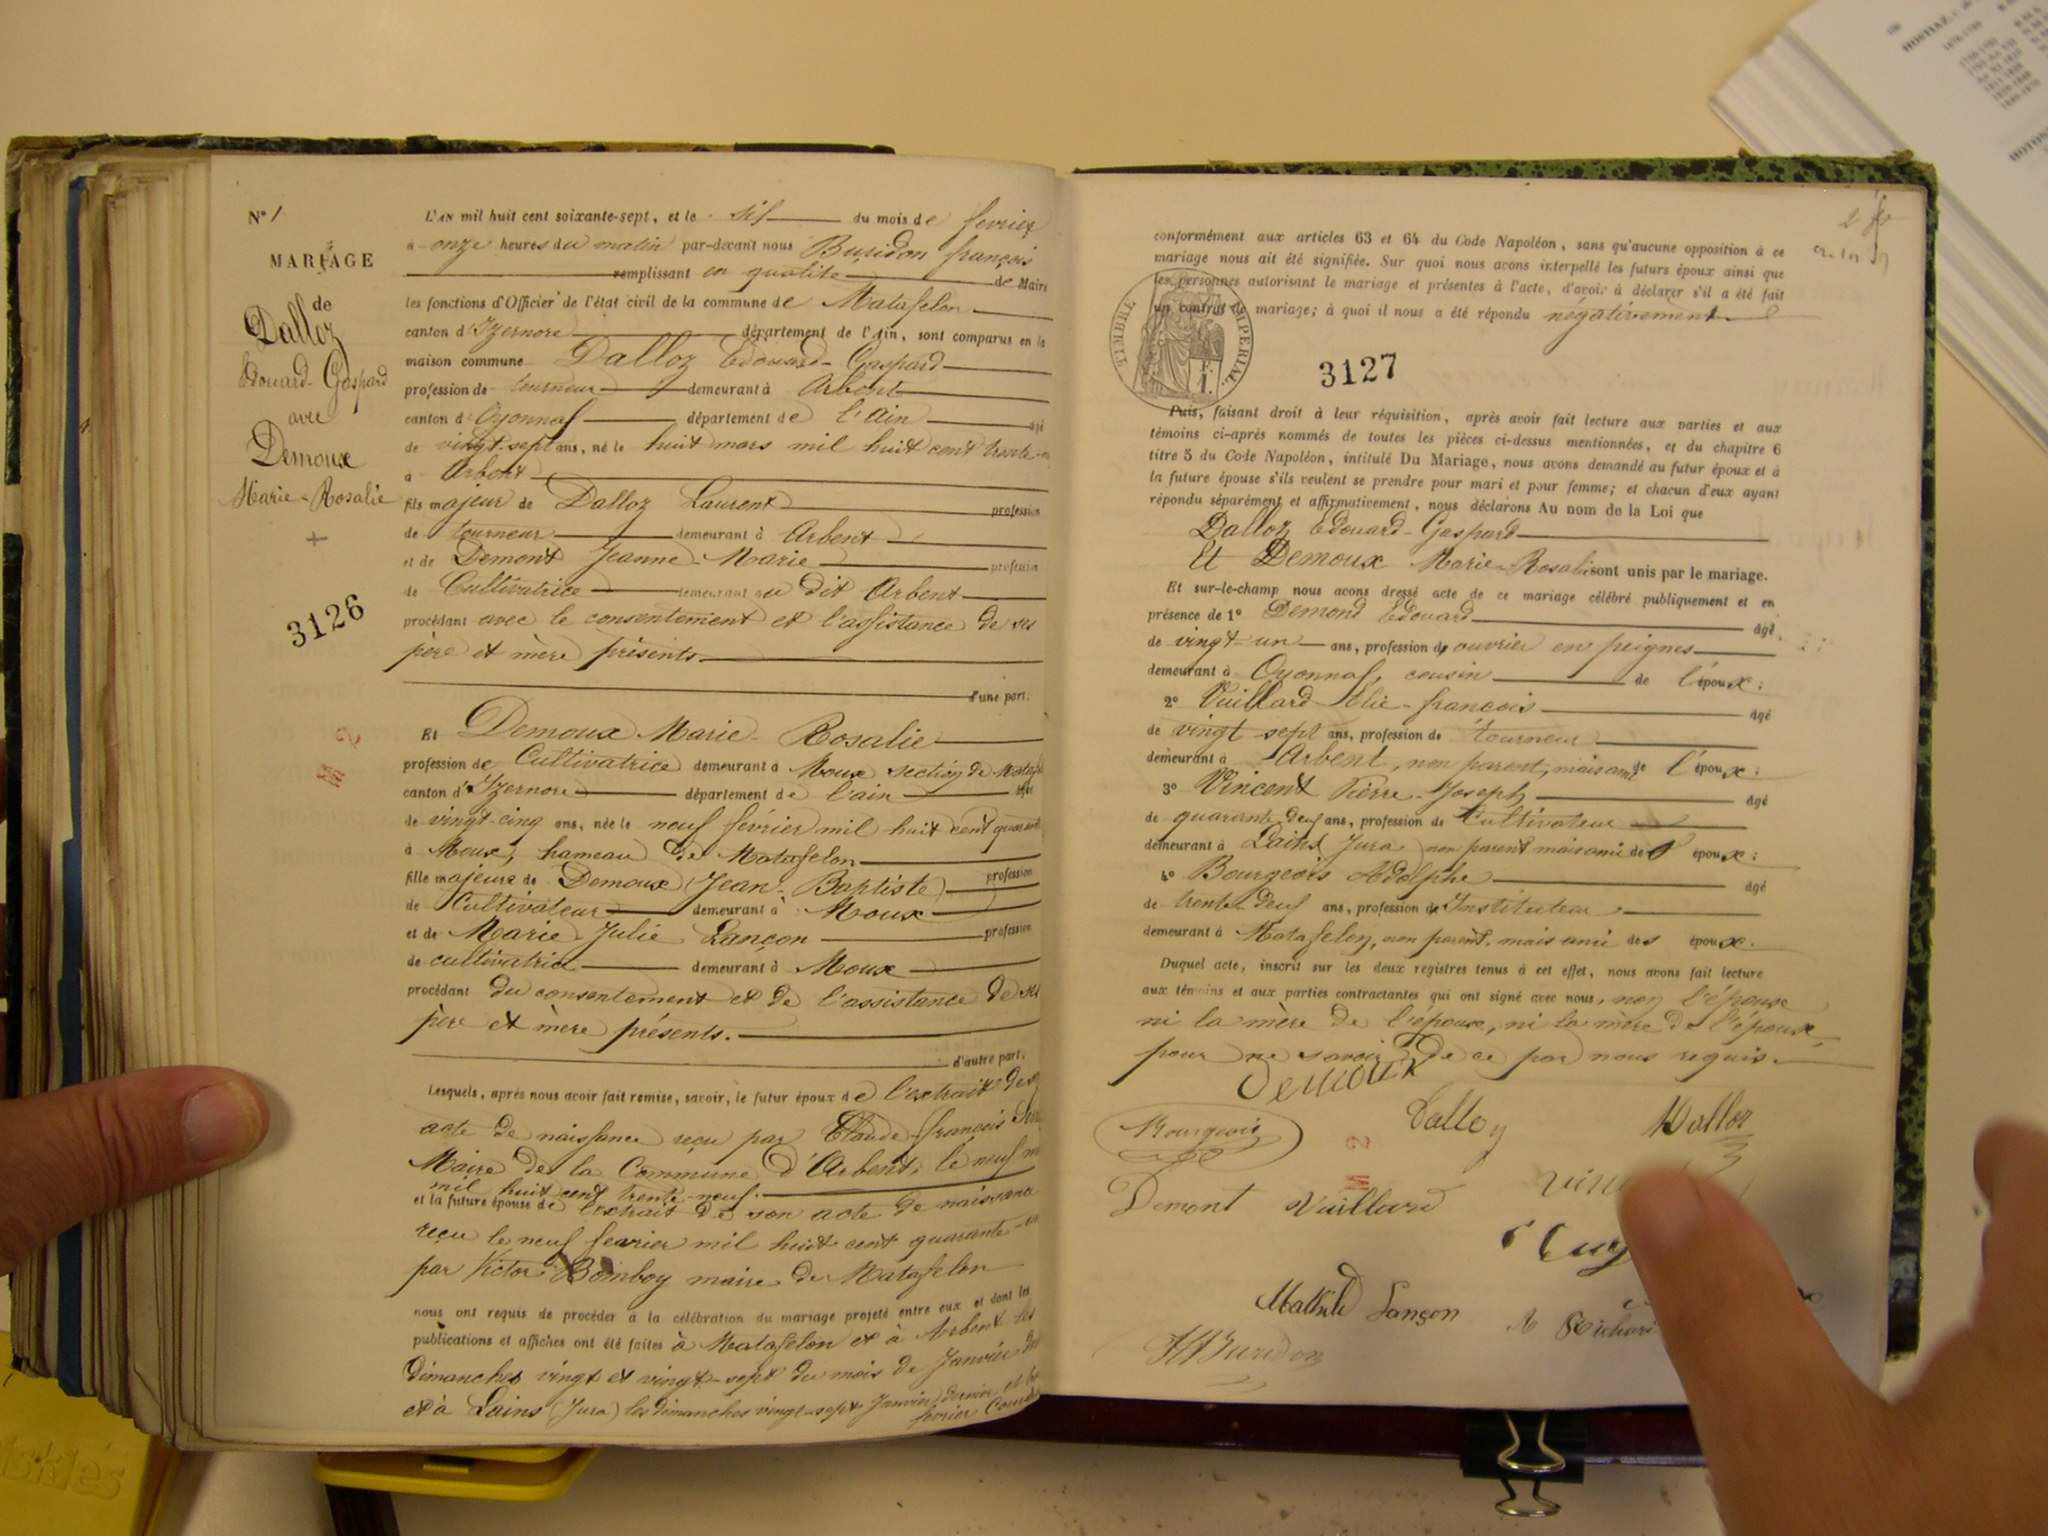 N° 1
MARIAGE
de
Dalloz
Edouard-Gaspard
avec
Demoux
Marie-Rosalie
3126
L'AN mil huit cent soixante-sept, et le six du mois de fevrier
à onze heures du matin par-devant nous Buridon françois
remplissant en qualité de Maire
les fonctions d'Officier de l'état civil de la commune de Matafelon
canton d'Izernore département de l'Ain, sont comparus en la
maison commune Dalloz Edouard-Gaspard
profession de tourneur demeurant à Arbent
canton d'Oyonnax département de l'Ain âgé
de vingt-sept ans, né le huit mars mil huit cent trente-
à Arbent
fils majeur de Dalloz Laurent profession
de tourneur demeurant à Arbent
et de Demont Jeanne-Marie profession
de Cultivatrice demeurant au dit Arbent
procédant avec le consentement et l'assistance de ses
père et mère présents
d'une part.
Et Demoux Marie-Rosalie
profession de Cultivatrice demeurant à Moux section de
canton d'Izernore département de l'ain
de vingt-cinq ans, née le neuf février mil huit cent
à Moux, hameau de Matafelon
fille majeure de Demoux Jean-Baptiste profession
de Cultivateur demeurant à Moux
et de Marie Julie Lançon profession
de cultivatrice demeurant à Moux
procédant du consentement et de l'assistance de ses
père et mère présents.
d'autre part.
Lesquels, après nous avoir fait remise, savoir, le futur époux de l'extrait de
acte de naissance reçu par Claude-françois
Maire de la Commune d'Arbent, le neuf
mil huit cent trente-neuf.
et la future épouse de l'extrait de son acte de naissance
reçu le neuf fevrier mil huit cent quarante-
par Victor Bomboy maire de Matafelon
nous ont requis de procéder à la célébration du mariage projeté entre eux et dont les
publications et affiches ont été faites à Matafelon et à Arbent les
dimanches vingt et vingt-sept du mois de Janvier
et à Lains (Jura) les dimanches vingt-sept Janvier dernier et
fevrier
conformément aux articles 63 et 64 du Code Napoléon, sans qu'aucune opposition à ce
mariage nous ait été signifiée. Sur quoi nous avons interpellé les futurs époux ainsi que
les personnes autorisant le mariage et présentes à l'acte, d'avoir à déclarer s'il a été fait
un contrat de mariage; à quoi il nous a été répondu négativement
TIMBRE IMPERIAL.
F.
1.
3127
Puis, faisant droit à leur réquisition, après avoir fait lecture aux parties et aux
témoins ci-après nommés de toutes les pièces ci-dessus mentionnées, et du chapitre 6
titre 5 du Code Napoléon, intitulé Du Mariage, nous avons demandé au futur époux et à
la future épouse s'ils veulent se prendre pour mari et pour femme; et chacun d'eux ayant
répondu séparément et affirmativement, nous déclarons Au nom de la Loi que
Dalloz Edouard-Gaspard
Et Demoux Marie-Rosalie sont unis par le mariage.
Et sur-le-champ nous avons dressé acte de ce mariage célébré publiquement et en
présence de 1° Demond Edouard âgé
de vingt-un ans, profession d'ouvrier en peignes
demeurant à Oyonnax, cousin de l'époux;
2° Vuillard Elie-françois âgé
de vingt sept ans, profession de tourneur
demeurant à Arbent, non parent, mais ami de l'époux;
3° Vincent Pierre-Joseph âgé
de quarante deux ans, profession de Cultivateur
demeurant à Lains Jura non parent mais ami de l'époux;
4° Bourgeois Adolphe âgé
de trente deux ans, profession d'Instituteur
demeurant à Matafelon, non parent, mais ami des époux.
Duquel acte, inscrit sur les deux registres tenus à cet effet, nous avons fait lecture
aux témoins et aux parties contractantes qui ont signé avec nous, non l'épouse
ni la mère de l'épouse, ni la mère de l'époux,
pour ne savoir de ce par nous requis.
Demoux
Bourgeois
Dalloz
Dalloz
Demont
Vuillard
Mathilde Lançon
Buridon